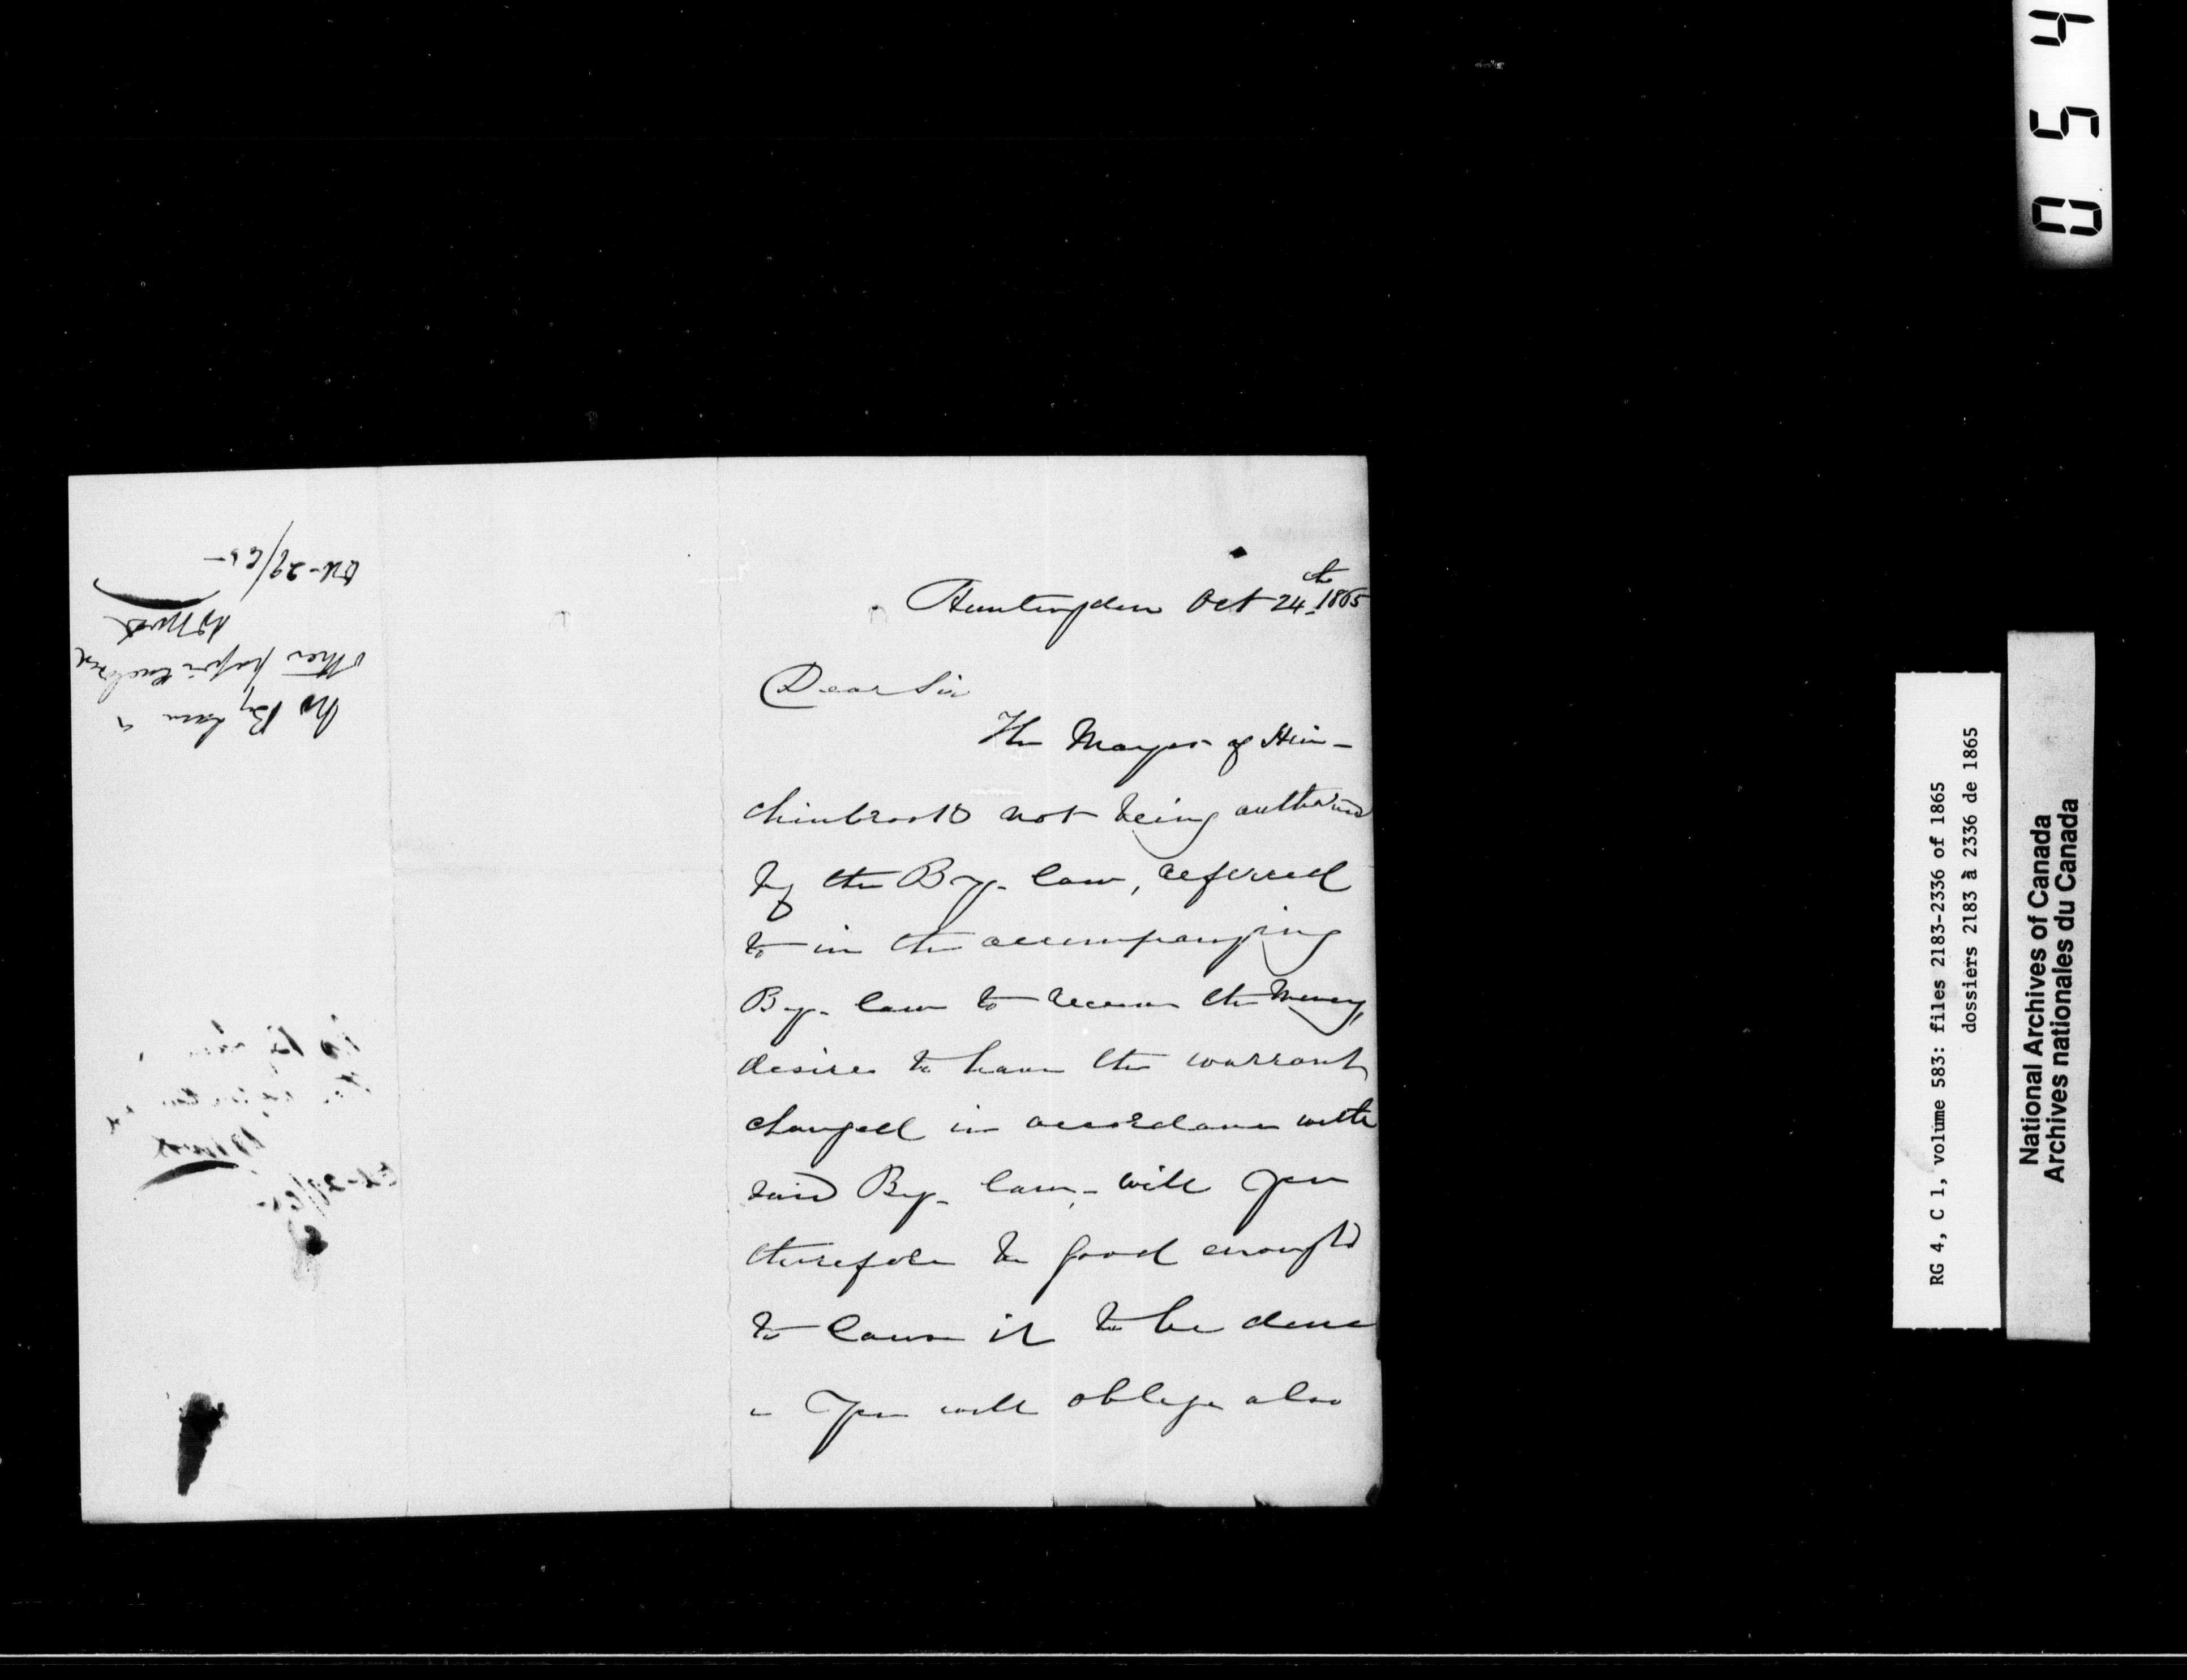 Huntingdon Oct 24th 1865
Dear Sir
The Mayor of Hin-
chinbrook not being authorised
by the By-law, referred
to in the accompanying
By-law to receive the money,
desires to have the warrant
changed in accordance with
said By-law - will you
therefore be good enough
to cause it to be done
& you will oblige also
No By law &
other paper enclosed
Oct-29/65
RG 4, C 1, volume 583: files 2183-2336 of 1865
dossiers 2183 à 2336 de 1865
National Archives of Canada
Archives nationales du Canada
0 5 4